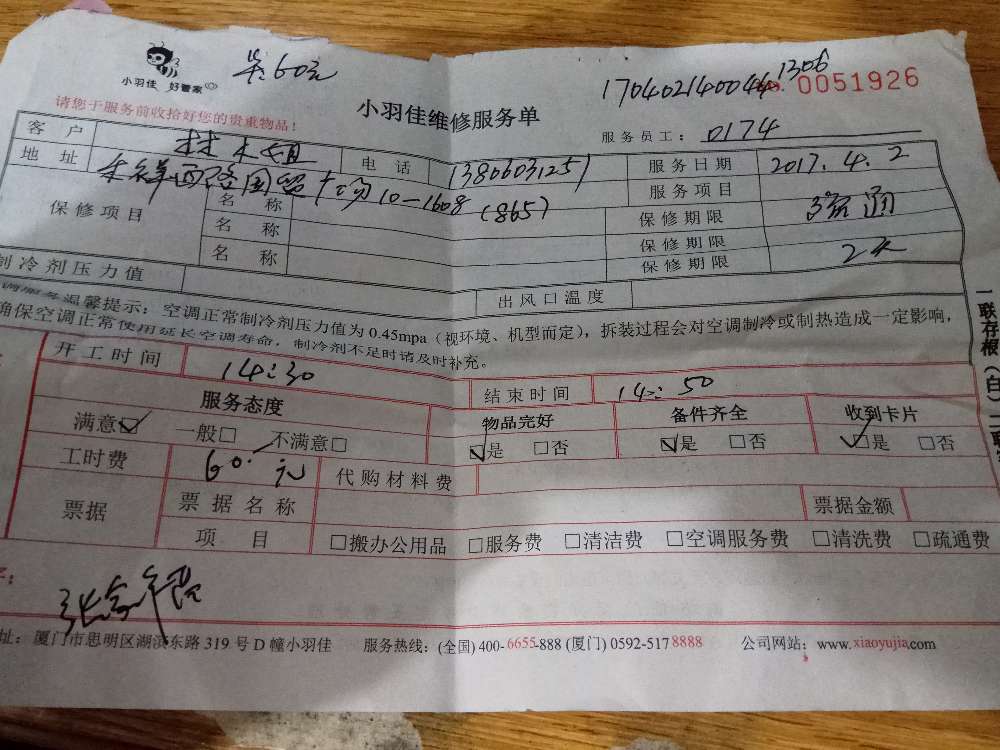 小羽佳 好管家
:60元
170402140044 1306
0051926
请您于服务前收拾好您的贵重物品！
小羽佳维修服务单
服务员工： 0174
客 户 林 姐 电 话 13806031251 服务日期 2017.4.2
地 址 祥西路国贸 10-1608 (865) 服务项目 疏通
保修项目 名 称 保修期限
名 称 保修期限 2天
名 称 保修期限
制冷剂压力值 出风口温度
调服务温馨提示：空调正常制冷剂压力值为 0.45mpa（视环境、机型而定），拆装过程会对空调制冷或制热造成一定影响，
确保空调正常使用延长空调寿命，制冷剂不足时请及时补充。
开工时间 14:30 结束时间 14:50
服务态度 物品完好 备件齐全 收到卡片
满意☑ 一般□ 不满意□ ☑是 □否 ☑是 □否 ☑是 □否
工时费 60.元 代购材料费
票据 票 据 名 称 票据金额
项 目 □搬办公用品 □服务费 □清洁费 □空调服务费 □清洗费 □疏通费
张
址：厦门市思明区湖滨东路 319 号 D 幢小羽佳 服务热线：(全国) 400-6655-888 (厦门) 0592-517 8888 公司网站：www.xiaoyujia.com
一联存根（白）二联